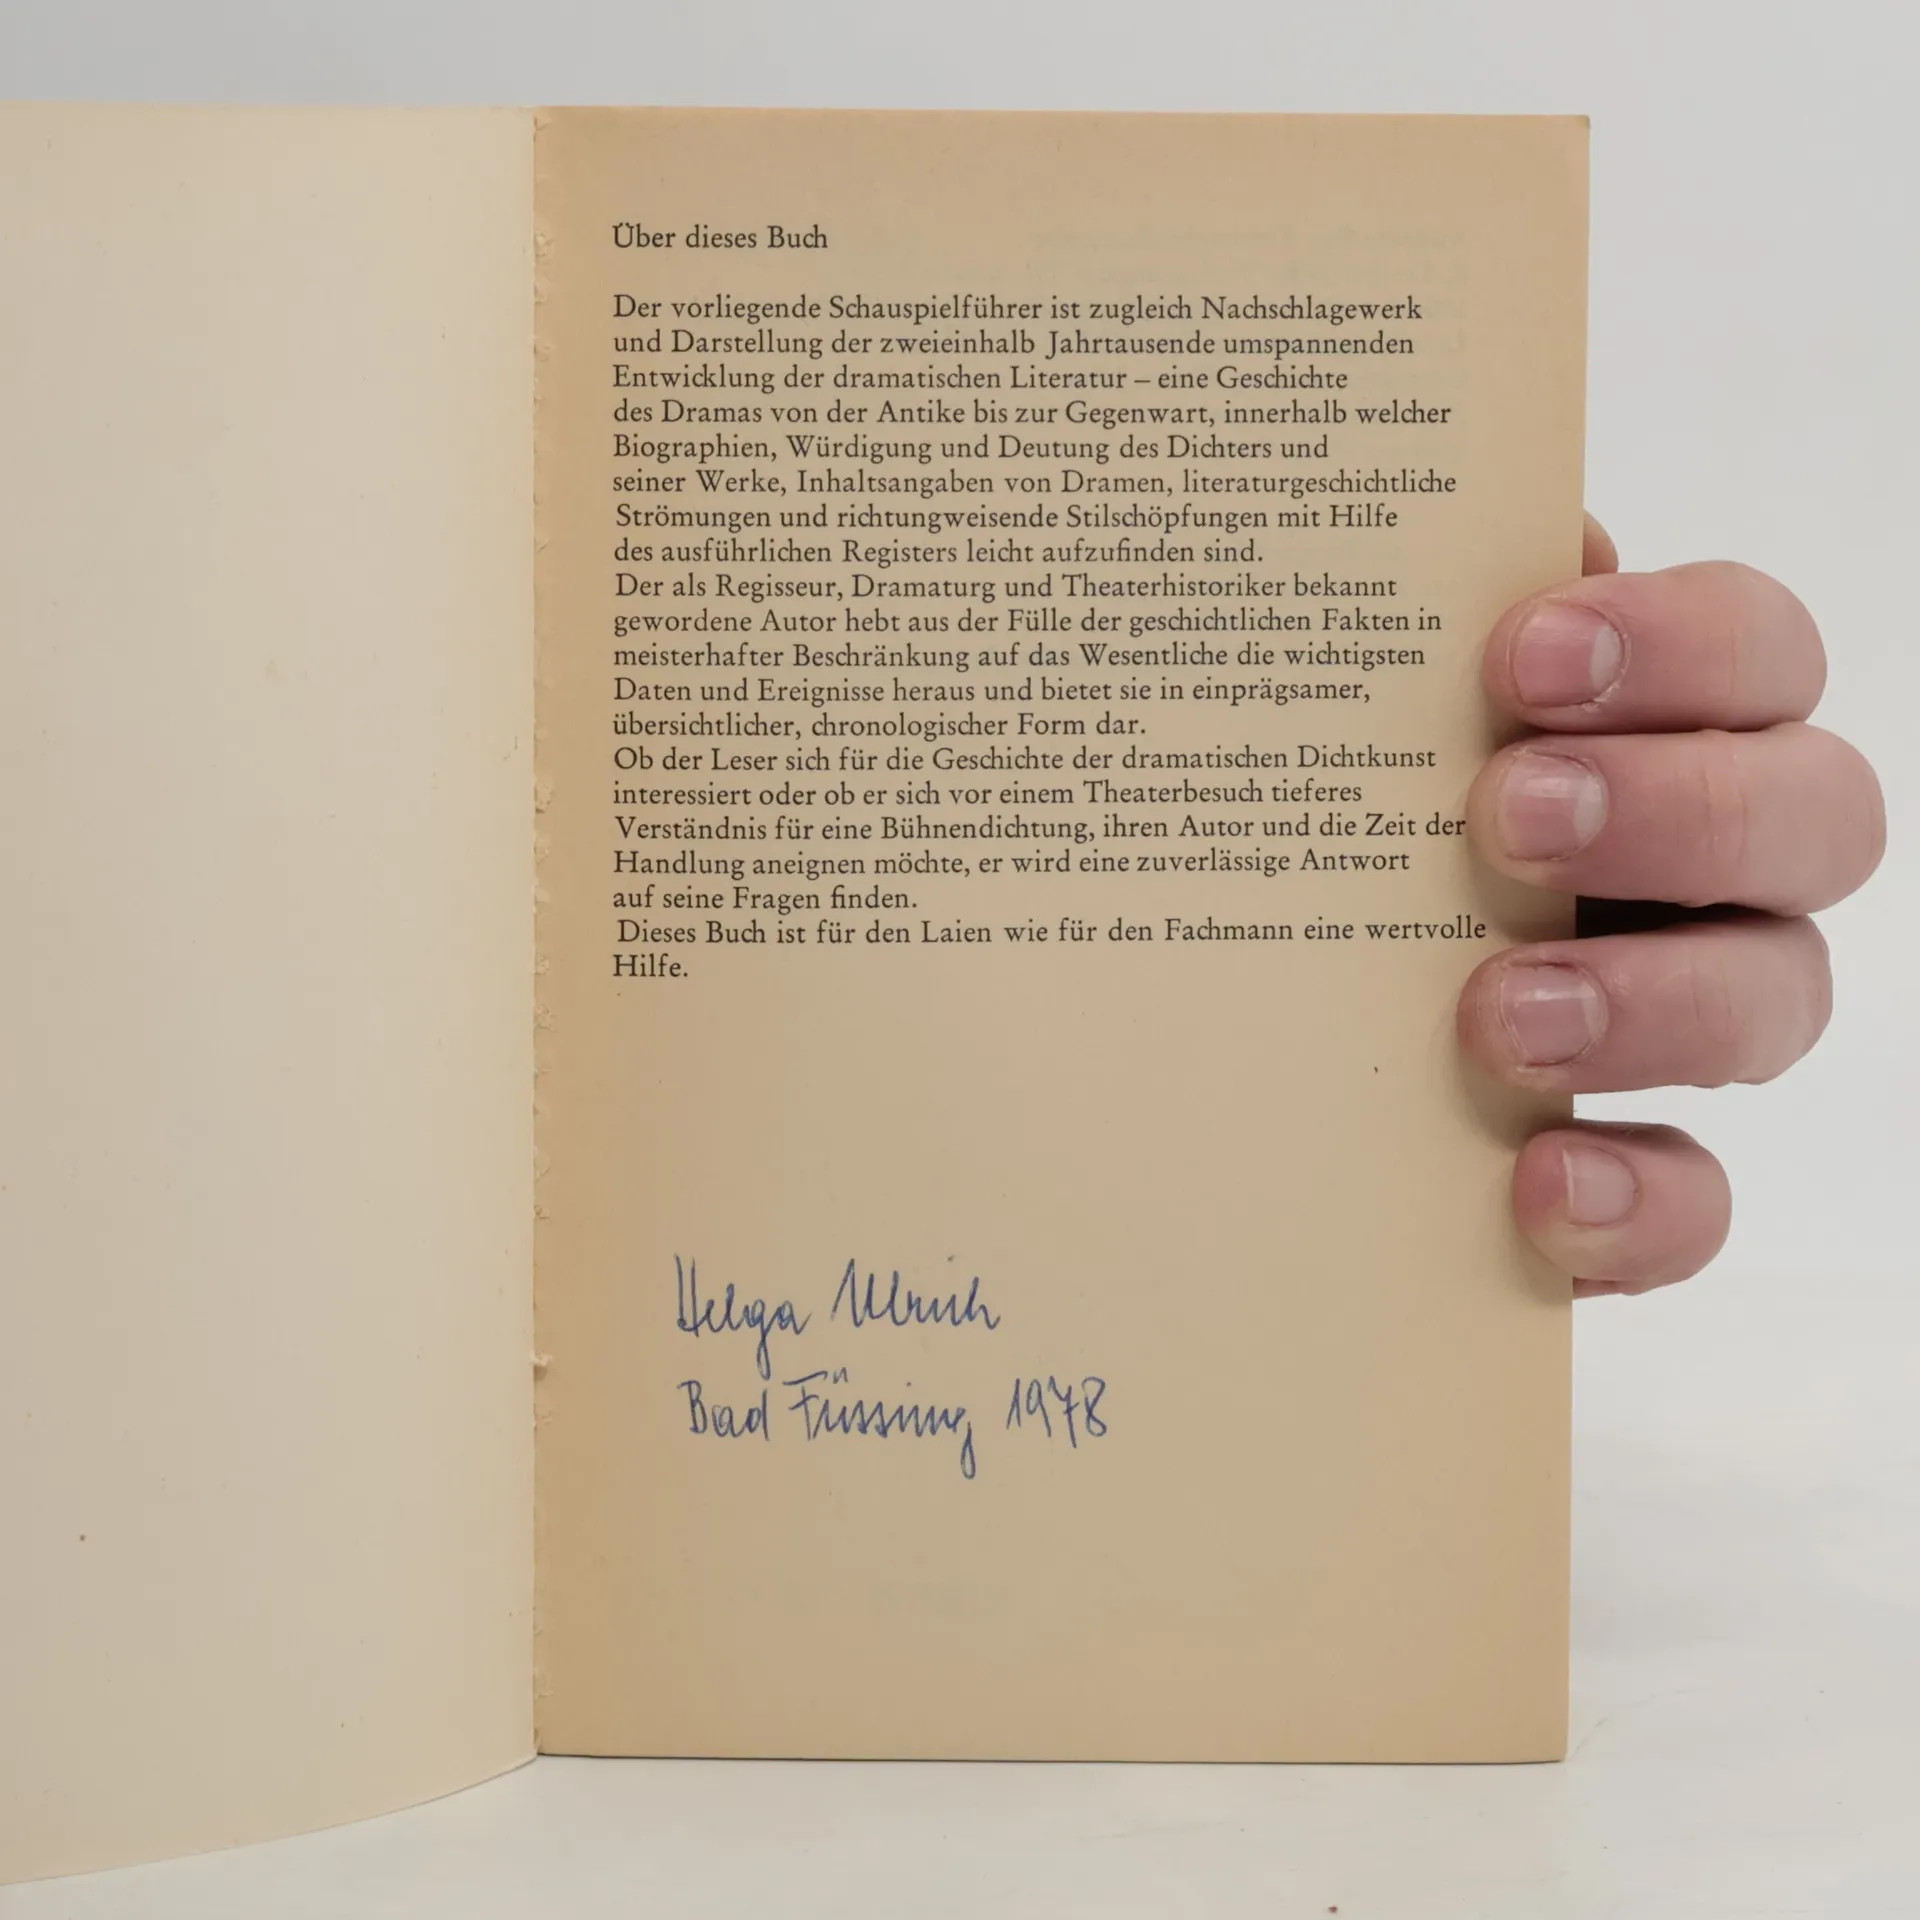 Über dieses Buch
Der vorliegende Schauspielführer ist zugleich Nachschlagewerk
und Darstellung der zweieinhalb Jahrtausende umspannenden
Entwicklung der dramatischen Literatur – eine Geschichte
des Dramas von der Antike bis zur Gegenwart, innerhalb welcher
Biographien, Würdigung und Deutung des Dichters und
seiner Werke, Inhaltsangaben von Dramen, literaturgeschichtliche
Strömungen und richtungweisende Stilschöpfungen mit Hilfe
des ausführlichen Registers leicht aufzufinden sind.
Der als Regisseur, Dramaturg und Theaterhistoriker bekannt
gewordene Autor hebt aus der Fülle der geschichtlichen Fakten in
meisterhafter Beschränkung auf das Wesentliche die wichtigsten
Daten und Ereignisse heraus und bietet sie in einprägsamer,
übersichtlicher, chronologischer Form dar.
Ob der Leser sich für die Geschichte der dramatischen Dichtkunst
interessiert oder ob er sich vor einem Theaterbesuch tieferes
Verständnis für eine Bühnendichtung, ihren Autor und die Zeit der
Handlung aneignen möchte, er wird eine zuverlässige Antwort
auf seine Fragen finden.
Dieses Buch ist für den Laien wie für den Fachmann eine wertvolle
Hilfe.
Helga Ulrich
Bad Füssing 1978